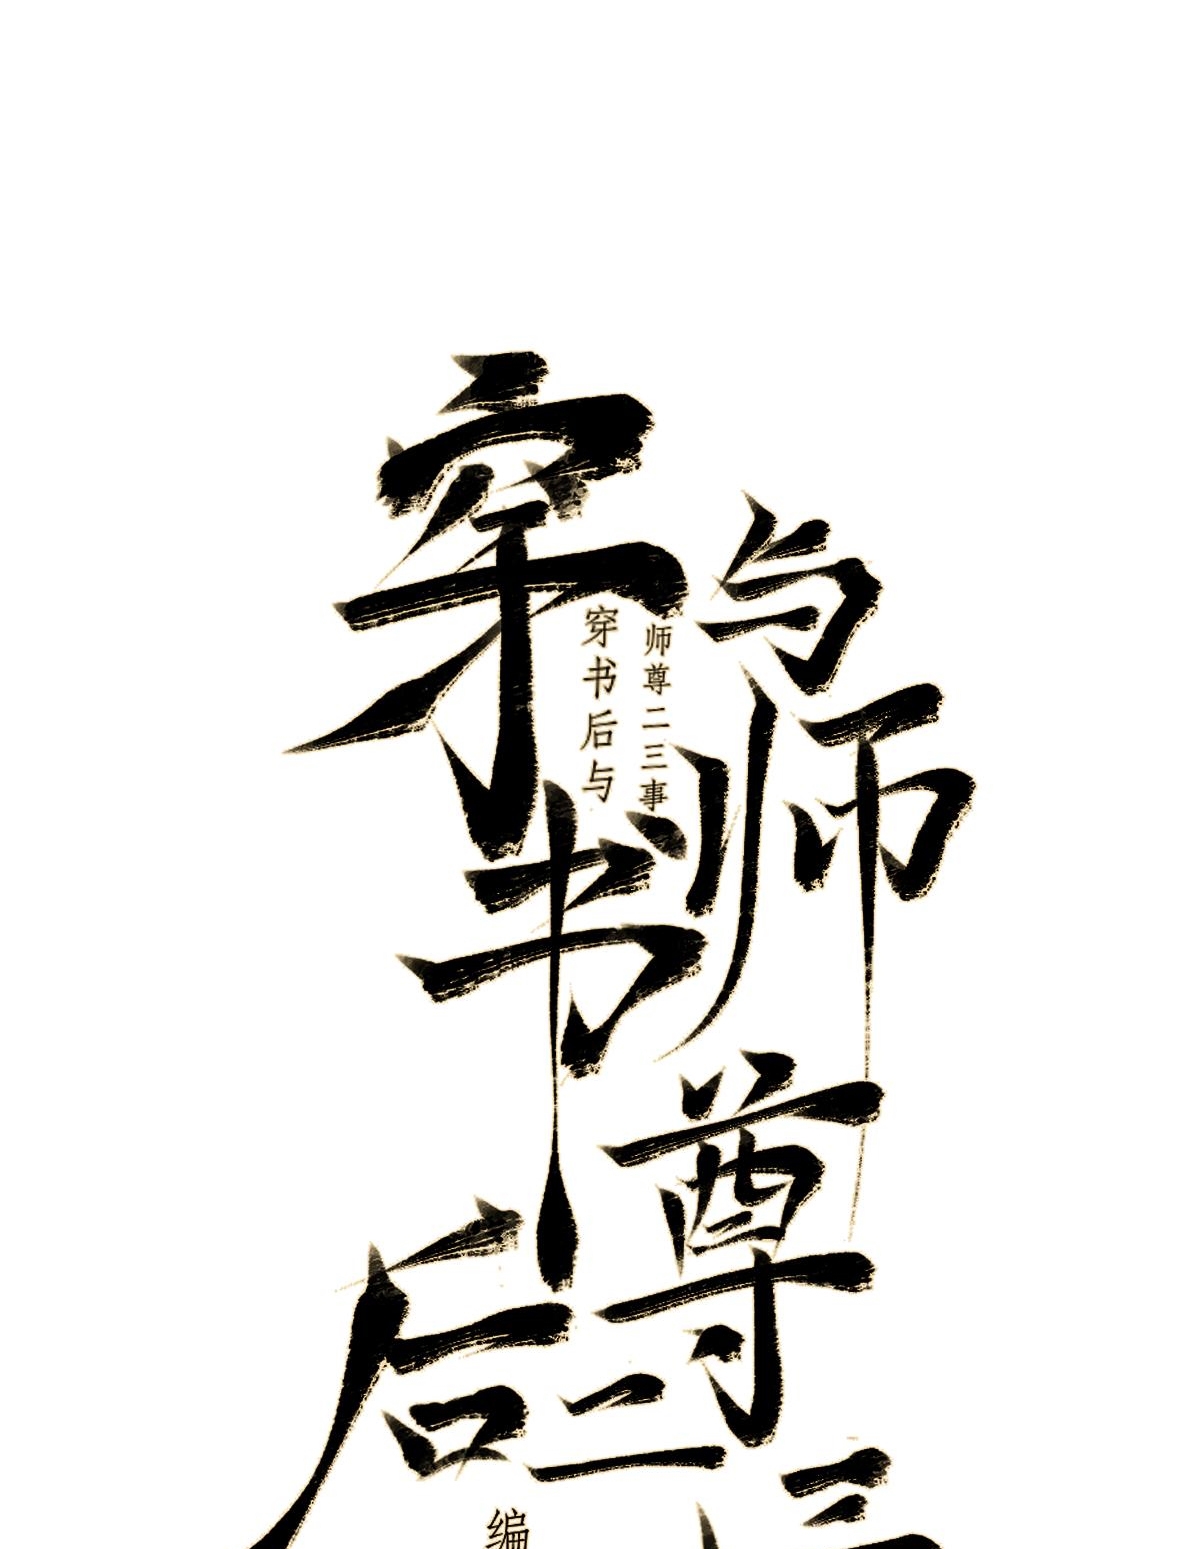 穿书后
与师尊二三
穿书后与
师尊二三事
编